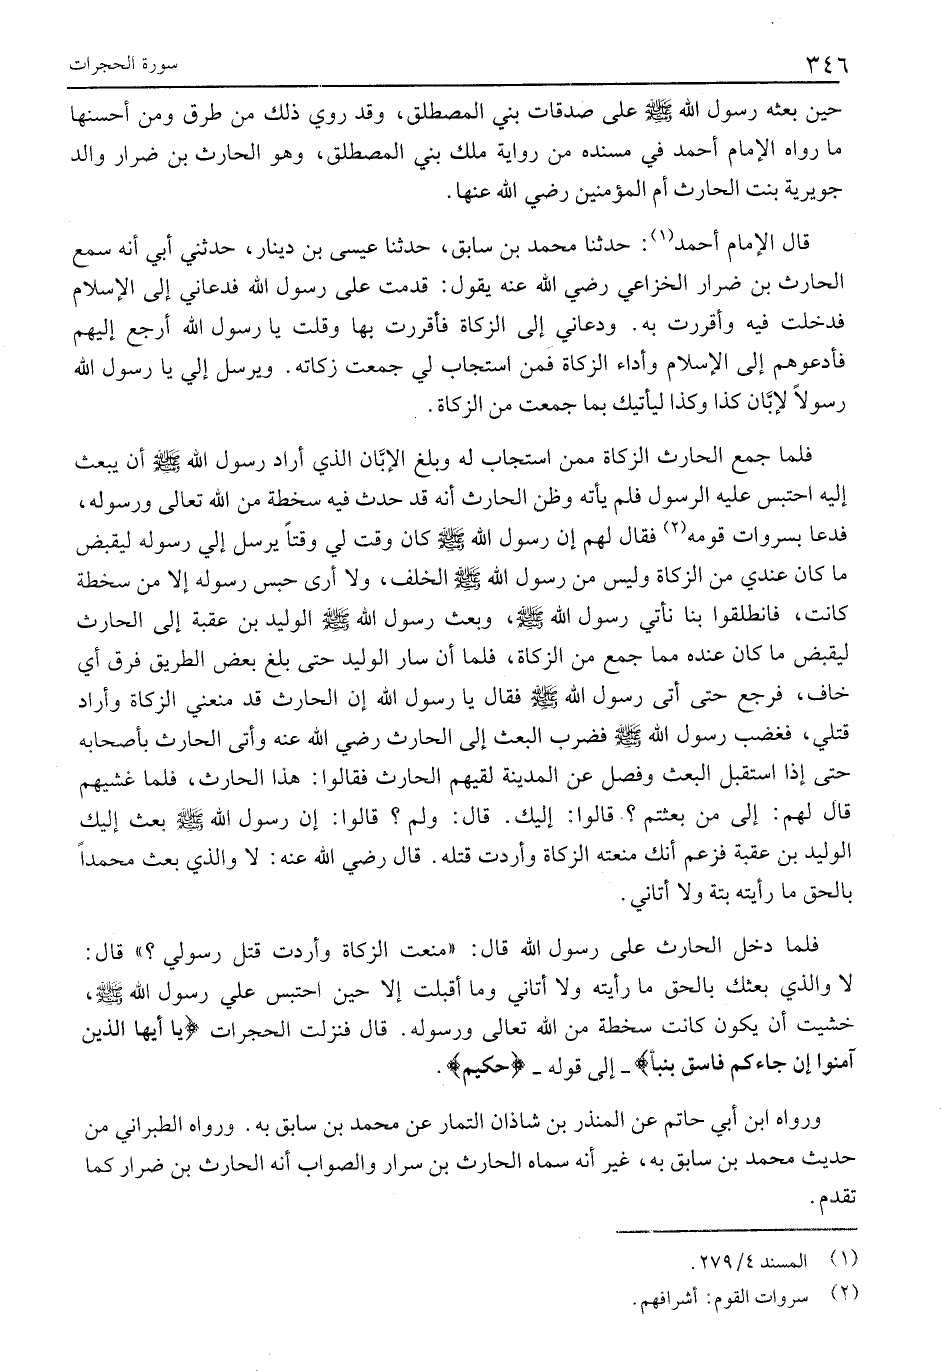 ٣٤٦ سورة الحجرات
حين بعثه رسول الله ﷺ على صدقات بني المصطلق، وقد روي ذلك من طرق ومن أحسنها
ما رواه الإمام أحمد في مسنده من رواية ملك بني المصطلق، وهو الحارث بن ضرار والد
جويرية بنت الحارث أم المؤمنين رضي الله عنها.
قال الإمام أحمد(١): حدثنا محمد بن سابق، حدثنا عيسى بن دينار، حدثني أبي أنه سمع
الحارث بن ضرار الخزاعي رضي الله عنه يقول: قدمت على رسول الله فدعاني إلى الإسلام
فدخلت فيه وأقررت به. ودعاني إلى الزكاة فأقررت بها وقلت يا رسول الله أرجع إليهم
فأدعوهم إلى الإسلام وأداء الزكاة فمن استجاب لي جمعت زكاته. ويرسل إلي يا رسول الله
رسولاً لإبَّان كذا وكذا ليأتيك بما جمعت من الزكاة.
فلما جمع الحارث الزكاة ممن استجاب له وبلغ الإبَّان الذي أراد رسول الله ﷺ أن يبعث
إليه احتبس عليه الرسول فلم يأته وظن الحارث أنه قد حدث فيه سخطة من الله تعالى ورسوله،
فدعا بسروات قومه(٢) فقال لهم إن رسول الله ﷺ كان وقت لي وقتاً يرسل إلي رسوله ليقبض
ما كان عندي من الزكاة وليس من رسول الله ﷺ الخلف، ولا أرى حبس رسوله إلا من سخطة
كانت، فانطلقوا بنا نأتي رسول الله ﷺ، وبعث رسول الله ﷺ الوليد بن عقبة إلى الحارث
ليقبض ما كان عنده مما جمع من الزكاة، فلما أن سار الوليد حتى بلغ بعض الطريق فرق أي
خاف، فرجع حتى أتى رسول الله ﷺ فقال يا رسول الله إن الحارث قد منعني الزكاة وأراد
قتلي، فغضب رسول الله ﷺ فضرب البعث إلى الحارث رضي الله عنه وأتى الحارث بأصحابه
حتى إذا استقبل البعث وفصل عن المدينة لقيهم الحارث فقالوا: هذا الحارث، فلما غشيهم
قال لهم: إلى من بعثتم؟ قالوا: إليك. قال: ولم؟ قالوا: إن رسول الله ﷺ بعث إليك
الوليد بن عقبة فزعم أنك منعته الزكاة وأردت قتله. قال رضي الله عنه: لا والذي بعث محمداً
بالحق ما رأيته بتة ولا أتاني.
فلما دخل الحارث على رسول الله قال: «منعت الزكاة وأردت قتل رسولي؟» قال:
لا والذي بعثك بالحق ما رأيته ولا أتاني وما أقبلت إلا حين احتبس علي رسول الله ﷺ،
خشيت أن يكون كانت سخطة من الله تعالى ورسوله. قال فنزلت الحجرات ﴿يا أيها الذين
آمنوا إن جاءكم فاسق بنبأ﴾ ـ إلى قوله ـ ﴿حكيم﴾.
ورواه ابن أبي حاتم عن المنذر بن شاذان التمار عن محمد بن سابق به. ورواه الطبراني من
حديث محمد بن سابق به، غير أنه سماه الحارث بن سرار والصواب أنه الحارث بن ضرار كما
تقدم.
(١) المسند ٤/٢٧٩.
(٢) سروات القوم: أشرافهم.